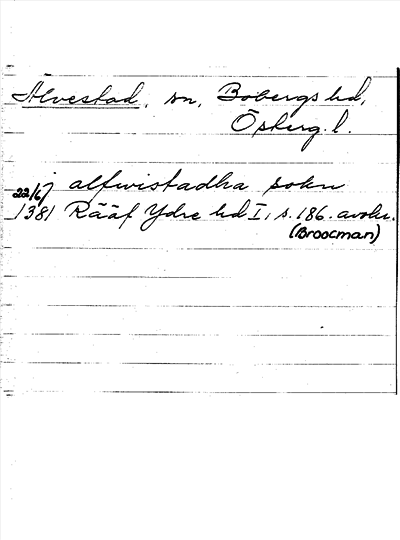 Alvestad, sn, Bobergs hd,
Östерg. l.
22/6 alfwistadha sokn
1381 Rääf Ydre hd I, s. 186. avskr.
(Broocman)